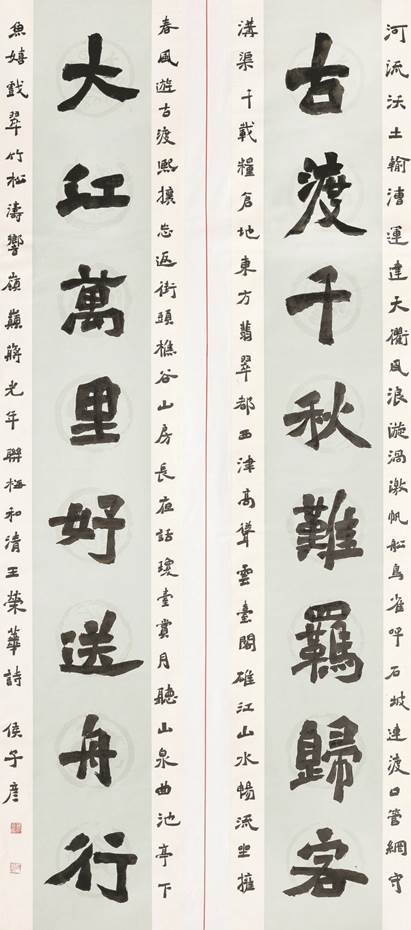 河流沃土輸漕運達天衢風浪漩渦激帆船鳥雀呼石坡連渡口管網守
古渡千秋難羈歸客
溝渠千載糧倉地東方翡翠都西津高聳雲臺閣江山水暢流坐擁
春風遊古渡熙攘忘返街頭樵谷山房長夜話瓊臺賞月聽山泉曲池亭下
大江萬里好送舟行
魚嬉戲翠竹松濤響嶺巔蔣光年聯和清王榮華詩 侯子彦